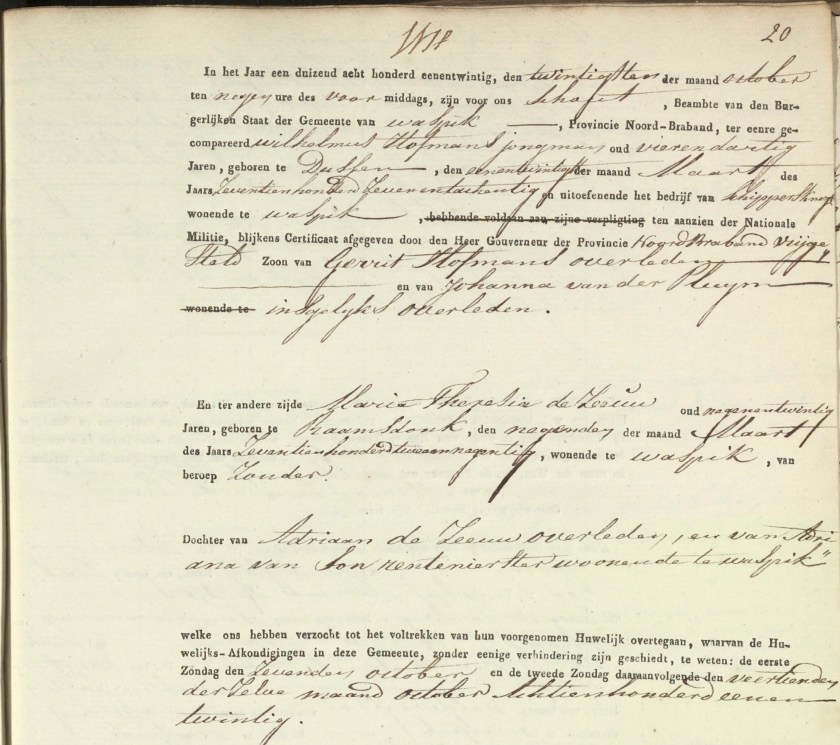 20
In het Jaar een duizend acht honderd eenentwintig, den twintigsten der maand october
ten negen ure des voor middags, zijn voor ons Schapt , Beambte van den Bur-
gerlijken Staat der Gemeente van waspik , Provincie Noord-Braband, ter eenre ge-
compareerd wilhelmus Hofmans jongman oud vierendartig
Jaren, geboren te Dussen , den eenentwintigste der maand Maart des
Jaars Zeventienhonderd Zevenentachentig en uitoefenende het bedrijf van Schippersknegt
wonende te waspik , hebbende voldaan aan zijne verpligting ten aanzien der Nationale
Militie, blijkens Certificaat afgegeven door den Heer Gouverneur der Provincie Noord Braband vrijge
steld Zoon van Gerrit Hofmans overleden
en van Johanna van der Pluym
wonende te insgelyks overleden.
En ter andere zijde Maria Theresia de Zeeuw oud negenentwintig
Jaren, geboren te Raamsdonk, den negenden der maand Maart
des Jaars Zeventienhonderd tweeennegentig, wonende te waspik , van
beroep Zonder.
Dochter van Adriaan de Zeeuw overleden, en van Adri
ana van Son rentenierster woonende te waspik"
welke ons hebben verzocht tot het voltrekken van hun voorgenomen Huwelijk overtegaan, waarvan de Hu-
welijks-Afkondigingen in deze Gemeente, zonder eenige verhindering zijn geschiedt, te weten: de eerste
Zondag den Zevenden october en de tweede Zondag daaraanvolgende den veertienden
der Zelve maand october Achtienhonderd eenen
twintig.